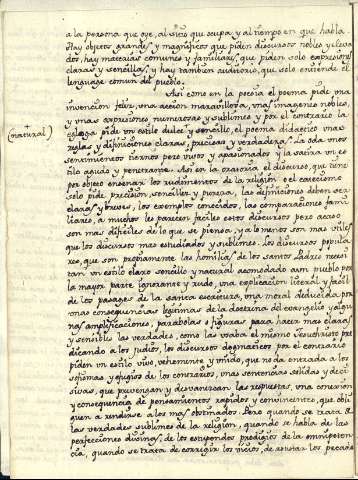 a la persona que oye, al sitio que ocupa y al tiempo en que habla.
Hay objetos grandes y magnificos que piden discursos nobles y eleva
dos, hay materias comunes y familiares, que piden solo expresiones
claras y sencillas, y hay tambien auditorio, que solo entiende el
lenguage comun del pueblo.
Asi como en la poesia el poema pide una
invencion feliz, una accion maravillosa, unas imagenes nobles,
y unas expresiones numerosas y sublimes y por el contrario la
(natural)
egloga pide un estilo dulce y sencillo, el poema didactico unas
reglas y difiniciones claras, precisas y verdaderas. La oda unos
sentimientos tiernos pero vivos y apasionados y la satira un es
tilo agudo y penetrante. Asi en la oratoria, el discurso, que tiene
por objeto enseñar los rudimentos de la religion, o el catecismo
solo pide precision, sencillez y pureza, las definiciones deben ser
claras y breves, los exemplos conocidos, las comparaciones fami
liares, a muchos les parecen faciles estos discursos pero acaso
son mas dificiles de lo que se piensa, y a lo menos son mas utiles
que los discursos mas estudiados y sublimes. Los discursos popula
res, que son propiamente las homilias de los santos Padres necesi
tan un estilo claro sencillo y natural acomodado a un pueblo por
la mayor parte ignorante y rudo, una explicacion literal y facil
de los pasages de la santa escritura, una moral deducida por
unas consequencias legitimas de la doctrina del evangelio y algu
nas amplificaciones, parabolas o figuras para hacer mas claras
y sensibles las verdades, como las usaba el mismo Jesuchristo pre
dicando a los judios, los discursos dogmaticos por el contrario
piden un estilo vivo, vehemente y unido, que no da entrada a los
sofismas y efugios de los contrarios, unas sentencias solidas y deci
sivas, que prevengan y desvanezcan las respuestas, una conexion
y consequencia de pensamientos rapidos y convincente, que obli
guen a rendirse a los mas obstinados. Pero quando se trata de
las verdades sublimes de la religion, quando se habla de las
perfecciones divinas, de los estupendos prodigios de la omnipoten
cia, quando se trata de corregir los vicios, de aterrar los pecado